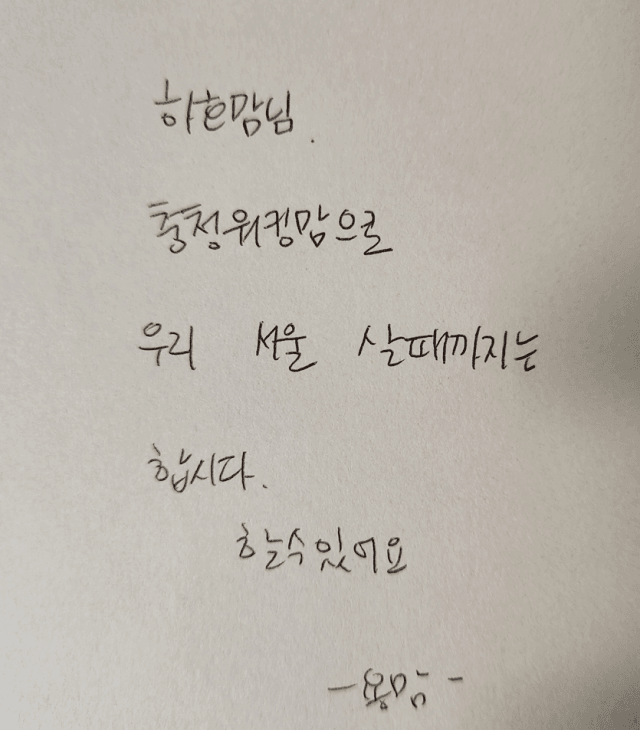 하흔맘님.
충청워킹맘으로
우리 서울 살때까지는
합시다.
할수있어요
-용맘-